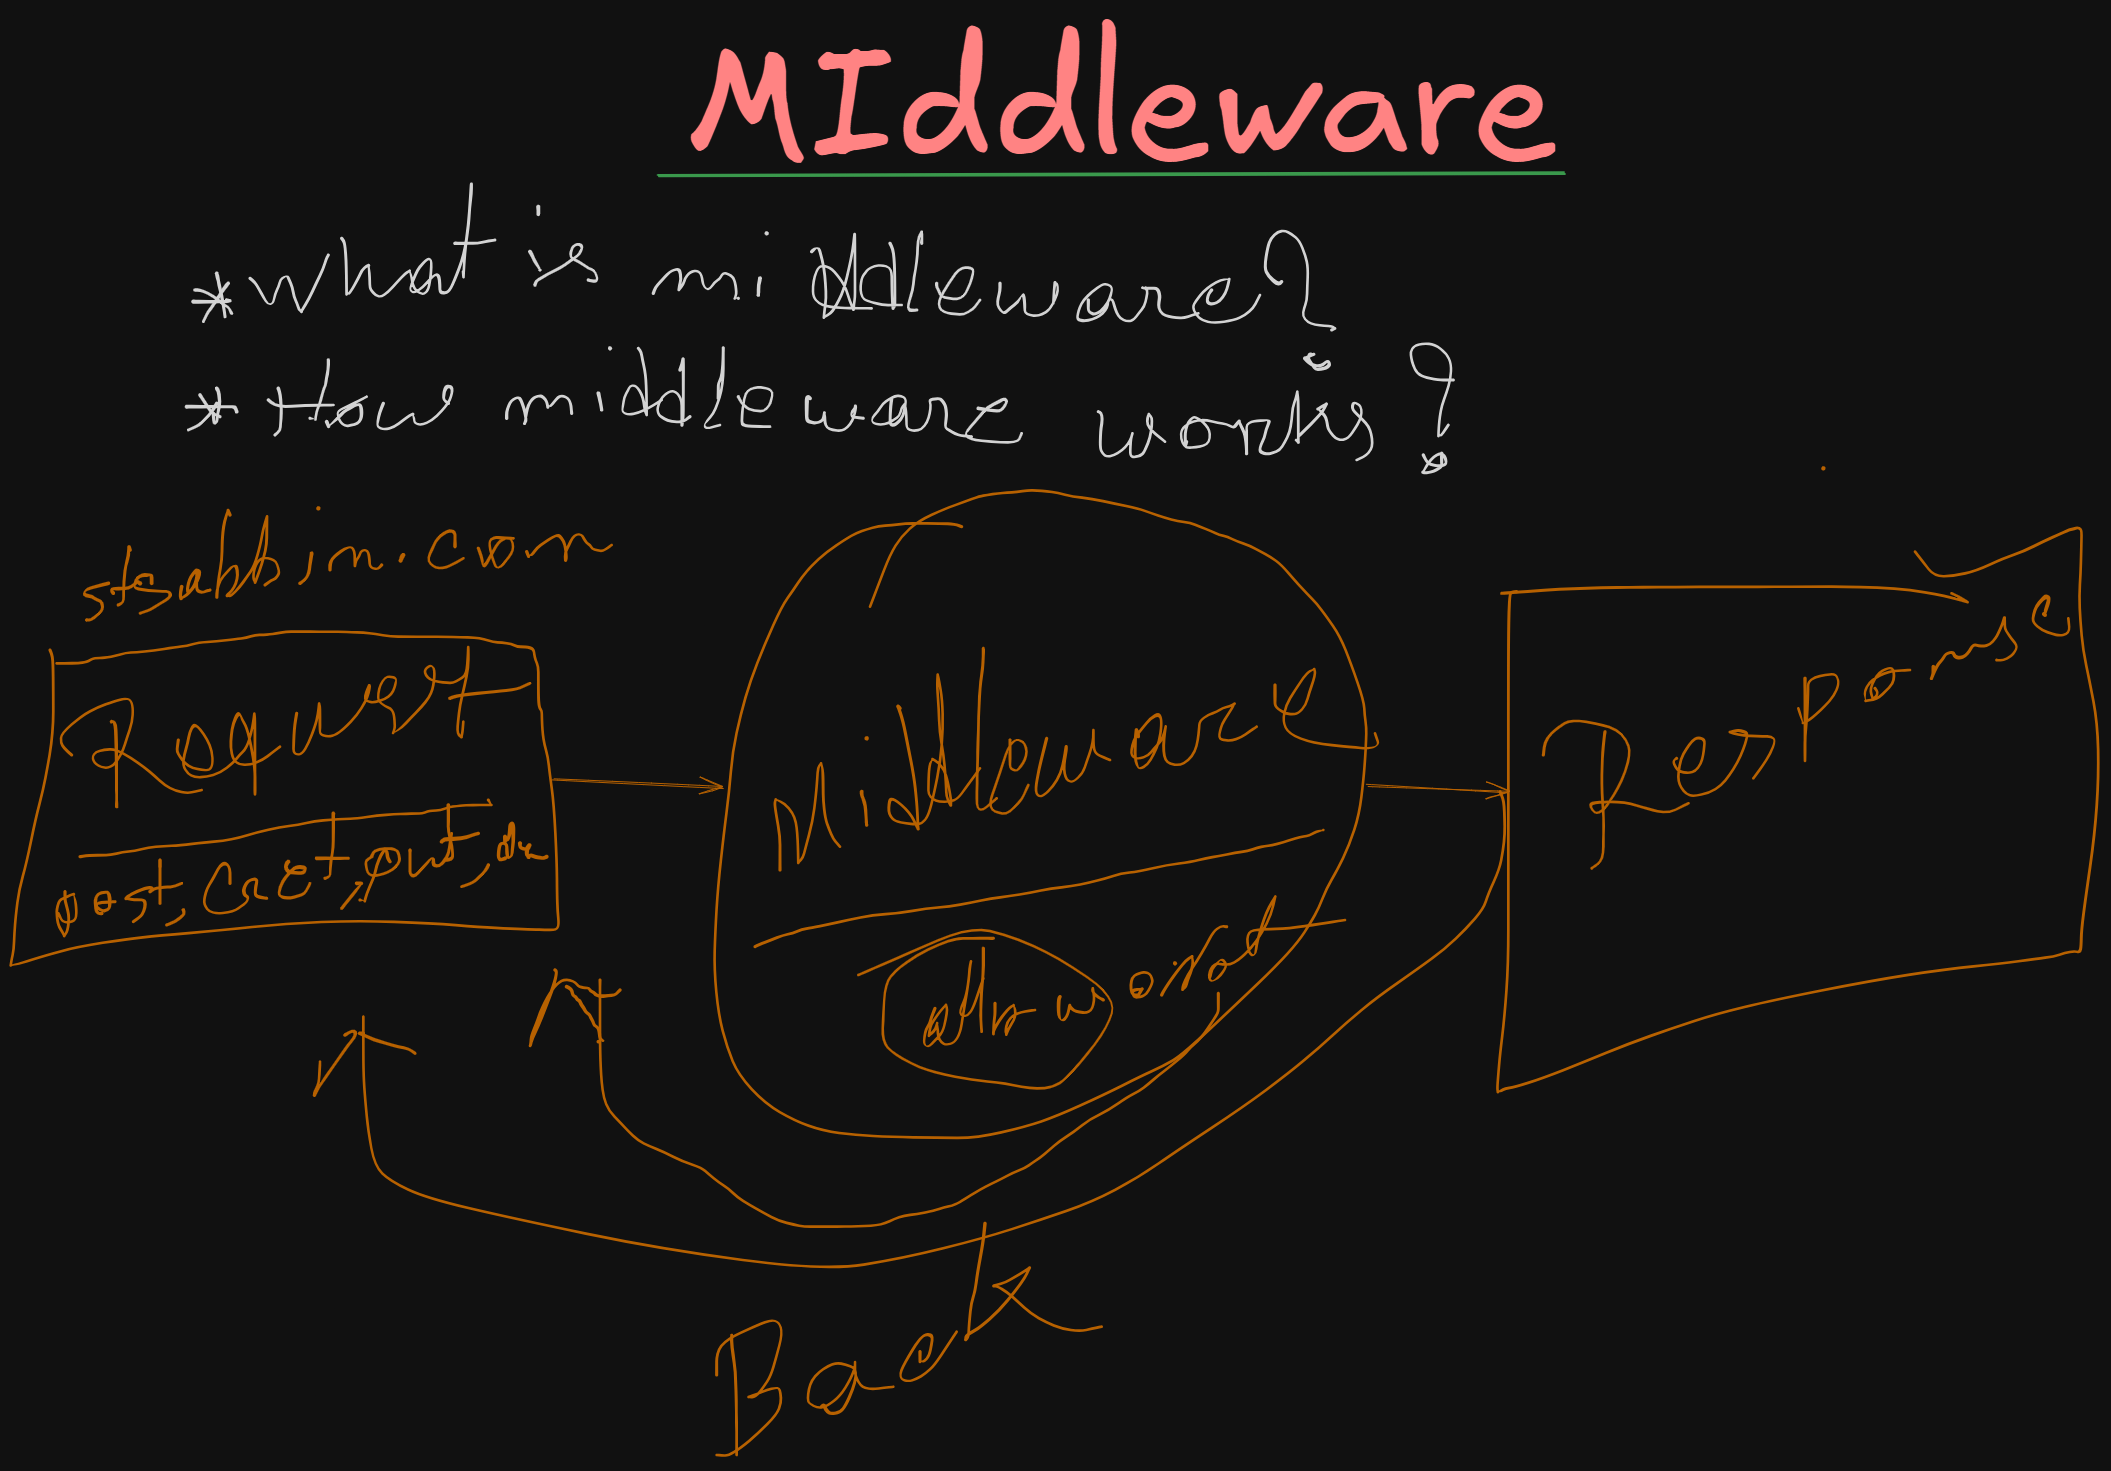 MIddleware
*What is middleware?
*How middleware works?
stsabbin.com
Request
post, Get, put, de
Middleware
Response
Back